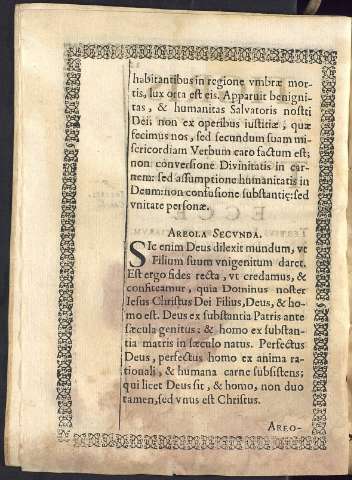 habitantibus in regione vmbræ mor-
tis, lux orta est eis. Apparuit benigni-
tas, & humanitas Salvatoris nostri
Dei; non ex operibus iustitiæ; quæ
fecimus nos, sed secundum suam mi-
sericordiam Verbum caro factum est;
non conversione Divinitatis in car-
nem: sed assumptione humanitatis in
Deum: non confusione substantię: sed
vnitate personæ.
AREOLA SECVNDA.
SIc enim Deus dilexit mundum, vt
Filium suum vnigenitum daret.
Est ergo fides recta, vt credamus, &
confiteamur, quia Dominus noster
Iesus Christus Dei Filius, Deus, & ho-
mo est. Deus ex substantia Patris ante
sæcula genitus: & homo ex substan-
tia matris in sæculo natus. Perfectus
Deus, perfectus homo ex anima ra-
tionali, & humana carne subsistens;
qui licet Deus sit, & homo, non duo
tamen, sed vnus est Christus.
AREO-